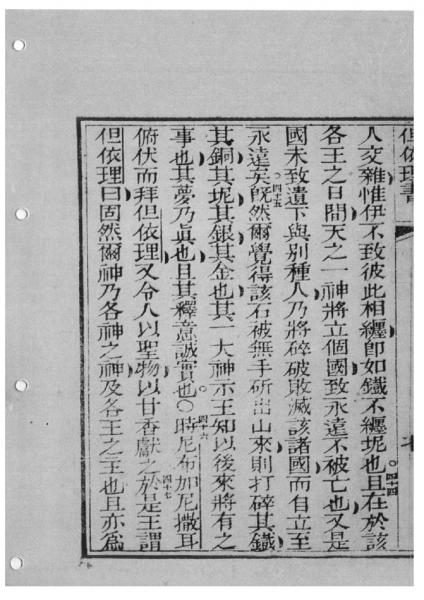 但依理書
人交雜惟伊不致彼此相纏卽如鐵不纏坭也○四十四且在於該
各王之日間天之一神將立個國致永遠不被亡也又是
國未致遺下與別種人乃將碎破敗滅該諸國而自立至
永遠矣○四十五旣然爾覺得該石被無手斫出山來則打碎其鐵
其銅其坭其銀其金也其一大神示王知以後來將有之
事也其夢乃眞也且其釋意誠實也○四十六時尼布加尼撒耳
俯伏而拜但依理又令人以聖物以甘香獻之於是○四十七王謂
但依理曰固然爾神乃各神之神及各王之王也且亦爲